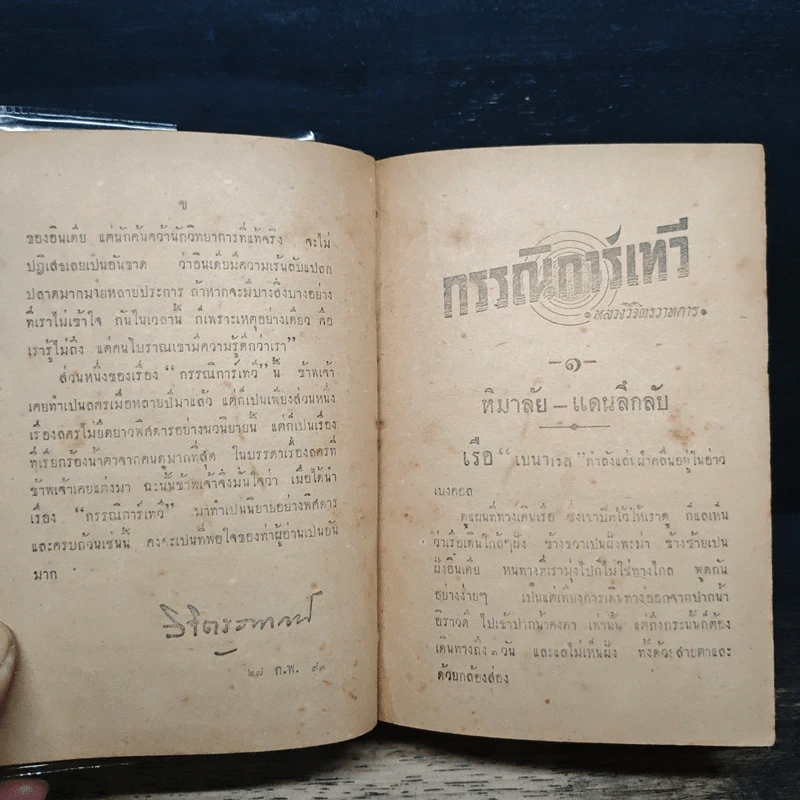 ข
ของอินเดีย แต่นักค้นคว้านักวิทยาการที่แท้จริง จะไม่
ปฏิเสธเลยเป็นอันขาด ว่าอินเดียมีความเร้นลับแปลก
ปลาดมากมายหลายประการ ถ้าหากจะมีบางสิ่งบางอย่าง
ที่เราไม่เข้าใจ กันในเวลานี้ ก็เพราะเหตุอย่างเดียว คือ
เรารู้ไม่ถึง แต่คนโบราณเขามีความรู้ดีกว่าเรา”
ส่วนหนึ่งของเรื่อง “กรรณิการ์เทวี” นี้ ข้าพเจ้า
เคยทำเป็นลครเมื่อหลายปีมาแล้ว แต่ก็เป็นเพียงส่วนหนึ่ง
เรื่องลครไม่ยืดยาวพิสดารอย่างนวนิยายนี้ แต่ก็เป็นเรื่อง
ที่เรียกร้องน้ำตาจากคนดูมากที่สุด ในบรรดาเรื่องลครที่
ข้าพเจ้าเคยแต่งมา ฉะนั้นข้าพเจ้าจึงมั่นใจว่า เมื่อได้นำ
เรื่อง “กรรณิการ์เทวี” มาทำเป็นนิยายอย่างพิศดาร
และครบถ้วนเช่นนี้ คงจะเป็นที่พอใจของท่าผู้อ่านเป็นอัน
มาก
วิจิตรวาทการ
๒๘ ก.พ. ๙๓
กรรณิการ์เทวี
•หลวงวิจิตรวาทการ•
—๑—
หิมาลัย – แดนลึกลับ
เรือ “เบนาเรส” กำลังแล่นฝ่าคลื่นอยู่ในอ่าว
เบงคอล
ดูแผนที่ทางเดินเรือ ซึ่งเขาปิดไว้ให้เราดู ก็แลเห็น
ว่าเรือเดินใกล้ๆฝั่ง ข้างขวาเป็นฝั่งพะม่า ข้างซ้ายเป็น
ฝั่งอินเดีย หนทางที่เรามุ่งไปก็ไม่ใช่ทางไกล พูดกัน
อย่างง่ายๆ เป็นแต่เพียงการเดินทางออกจากปากน้ำ
อิราวดี ไปเข้าปากน้ำคงคา เท่านั้น แต่ถึงกระนั้นก็ต้อง
เดินทางถึง ๓ วัน และแลไม่เห็นฝั่ง ทั้งด้วยสายตาและ
ด้วยกล้องส่อง